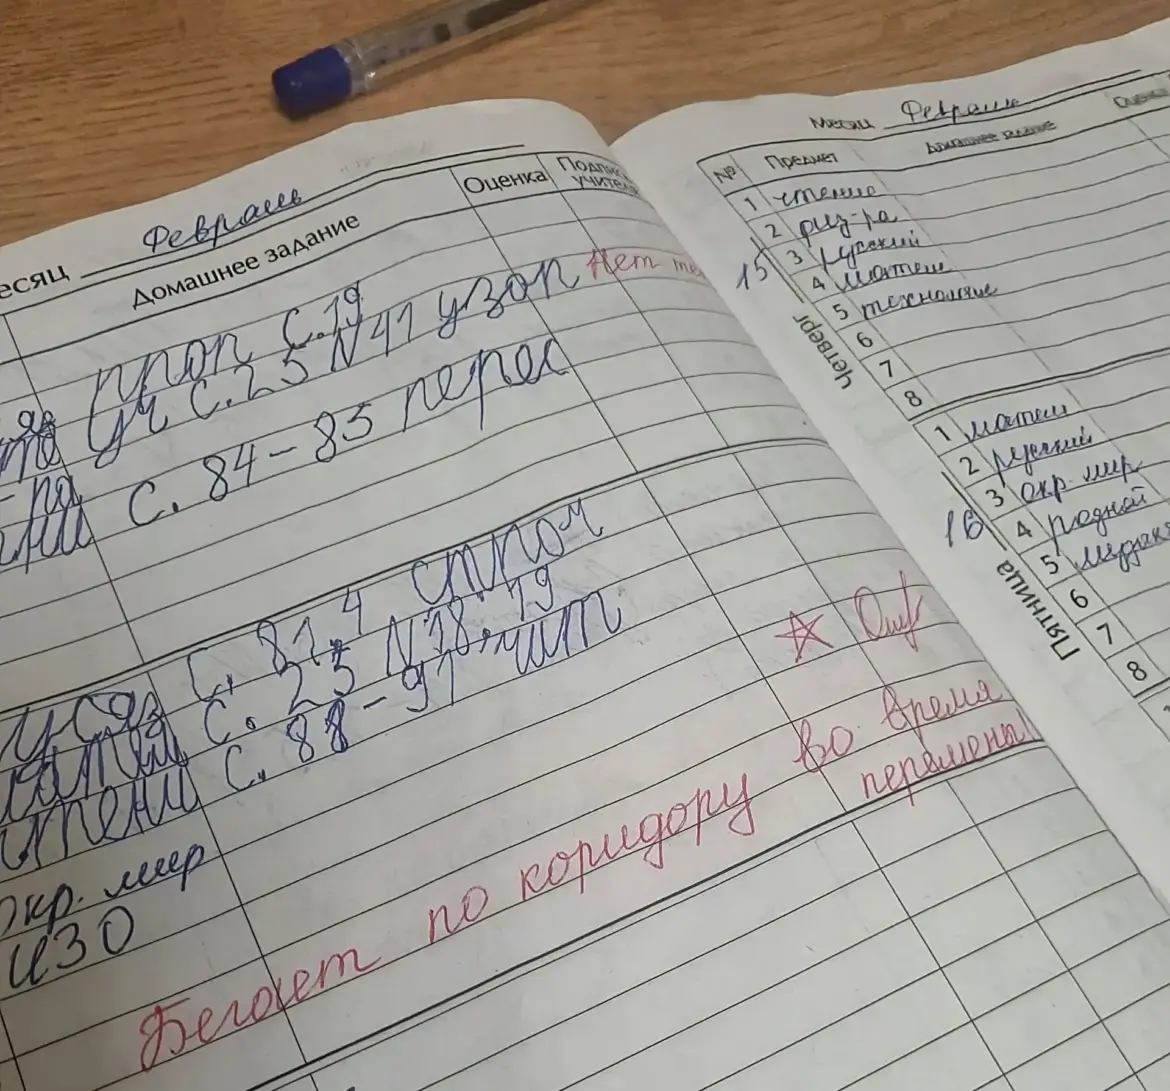 есяц Февраль
Домашнее задание Оценка Подпись учителя
проп С.19
уч С.25 N41 узоп Нет те
С. 84-85 перес
усяз С. 81,4 стпом
атем С. 25 N18,19
тени С. 88-91 чит
окр. мир
ИЗО
Бегает по коридору во время
перемены
месяц Февраль
№ Предмет Домашнее задание Оценка
15 Четверг
1 чтение
2 физ-ра
3 русский
4 матем
5 технология
6
7
8
16 Пятница
1 матем
2 русский
3 окр. мир
4 родной
5 музыка
6
7
8